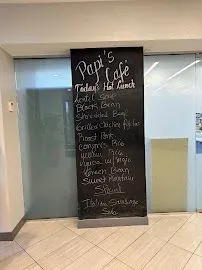 Papi's
Café
Today's Hot Lunch
Lentil Soup
Black Bean
Shredded Beef
Grilled Chicken
Roast Pork
Congris Rice
Yellow Rice
Yuca w/ mojo
Green Bean
Sweet Plantain
Special
Italian Sausage
Sub